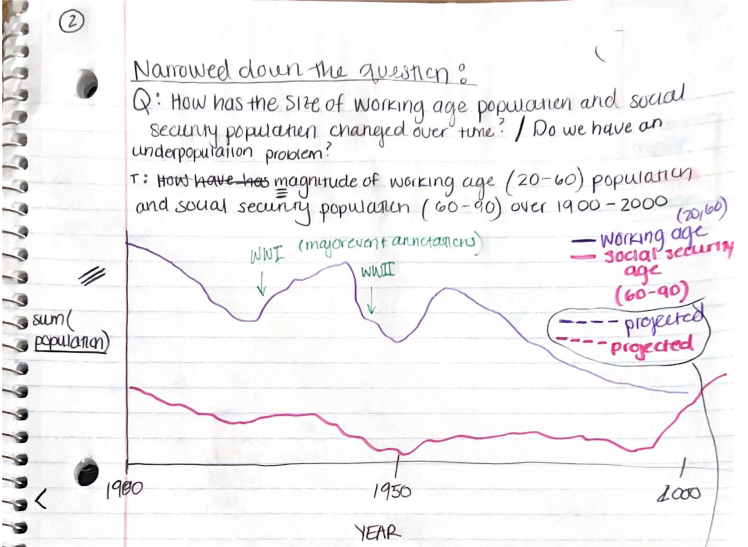 2
Narrowed down the question:
Q: How has the size of working age population and social
security population changed over time? / Do we have an
underpopulation problem?
T: How have has magnitude of working age (20-60) population
and social security population (60-90) over 1900-2000
(20,60)
WWI (major event annotations)
WWII
working age
social security
age
(60-90)
projected
projected
sum(
population)
1900
1950
2000
YEAR